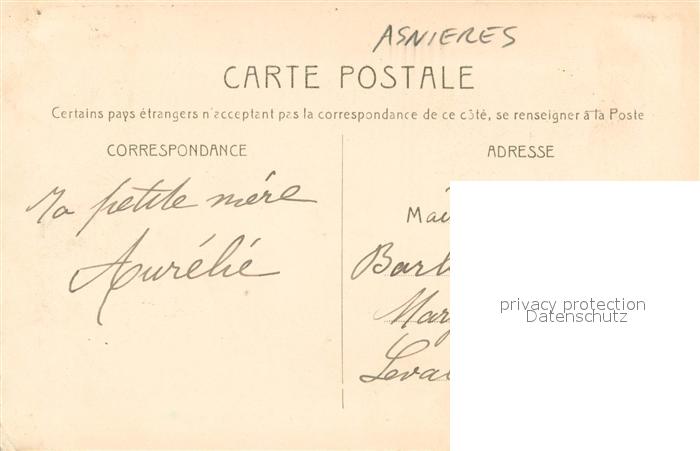 ASNIERES
CARTE POSTALE
Certains pays étrangers n'acceptant pas la correspondance de ce côté, se renseigner à la Poste
CORRESPONDANCE
ADRESSE
Ta petite mère
Aurélie
Mai
Barb
Mar
Leval
privacy protection
Datenschutz